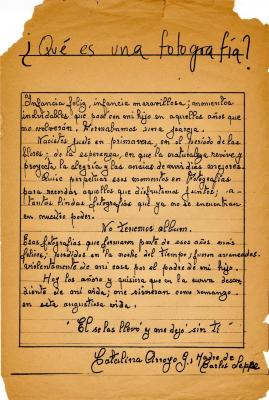 ¿Qué es una fotografía?
Infancia feliz, infancia maravillosa; momentos
inolvidables que pasé con mi hijo en aquellos años que
no volverán. Formábamos una pareja.
Naciste justo en primavera, en el período de las
flores; de la esperanza, en que la naturaleza revive y
proyecta la alegría y las ansias de vivir días mejores.
Quise perpetuar esos momentos en fotografías
para recordar aquellos que disfrutamos juntos;
tantas lindas fotografías que ya no se encuentran
en nuestro poder.
No tenemos álbum.
Esas fotografías que formaron parte de esos años más
felices; perdidos en la noche del tiempo; fueron arrancadas
violentamente de mi casa por el padre de mi hijo.
Hoy los añoro y quisiera que en la curva descen
diente de mi vida; me sirvieran como remanso
en esta angustiosa vida.
"El se las llevó y me dejó sin ti"
Catalina Arroyo G., Madre de
Carlos Leppe